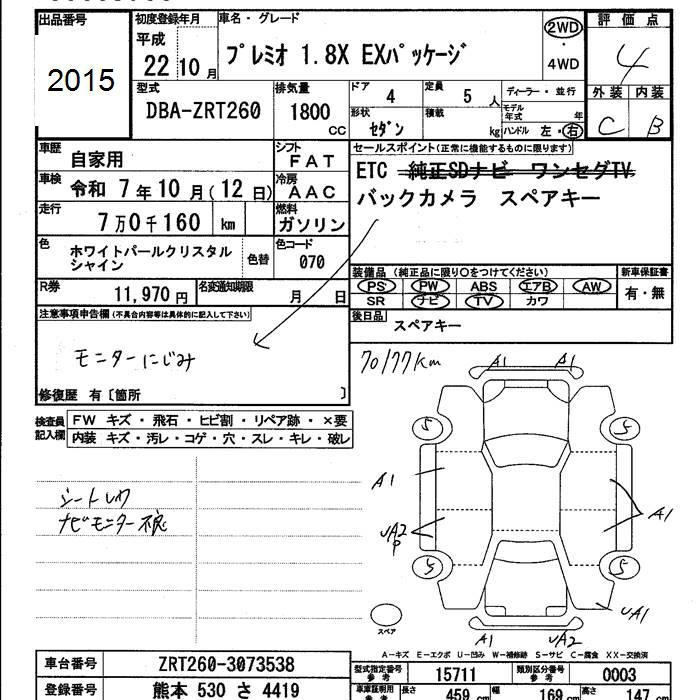 出品番号 初度登録年月 車名・グレード 評価点
2015
平成
22 10月 プレミオ 1.8X EXパッケージ 2WD ・ 4WD 4
型式 排気量 ドア 定員 ディーラー・並行 外装 内装
DBA-ZRT260 1800 CC 4 5 人 モデル年式 年 C B
形状 セダン 積載 kg ハンドル 左・右
車歴 自家用 シフト FAT セールスポイント(正常に機能するものに限ります)
車検 令和 7年10月(12日) 冷房 AAC ETC 純正SDナビ ワンセグTV
走行 7万0千160 km 燃料 ガソリン バックカメラ スペアキー
色 ホワイトパールクリスタル
シャイン 色替 色コード 070
装備品 (純正品に限り○をつけてください) 新車保証書
PS PW ABS エアB AW 有・無
SR ナビ TV カワ
R券 11,970円 名変通知期限 月 日
注意事項申告欄(不具合内容等は具体的に記入して下さい) 後日品 スペアキー
モニターにじみ
70177km
修復歴 有[箇所 ]
検査員記入欄 FW キズ・飛石・ヒビ割・リペア跡・×要
内装 キズ・汚レ・コゲ・穴・スレ・キレ・破レ
A1 A1
S S
A1
シートしわ
ナビモニター不良
A1
UA2
P
S S
UA1
スペア
A1 UA2
A-キズ E-エクボ U-凹み W-補修跡 S-サビ C-腐食 XX-交換済
車台番号 ZRT260-3073538 型式指定番号 参考 15711 類別区分番号 参考 0003
登録番号 熊本 530 さ 4419 車庫証明用 参考 長さ 459 cm 幅 169 cm 高さ 147 cm